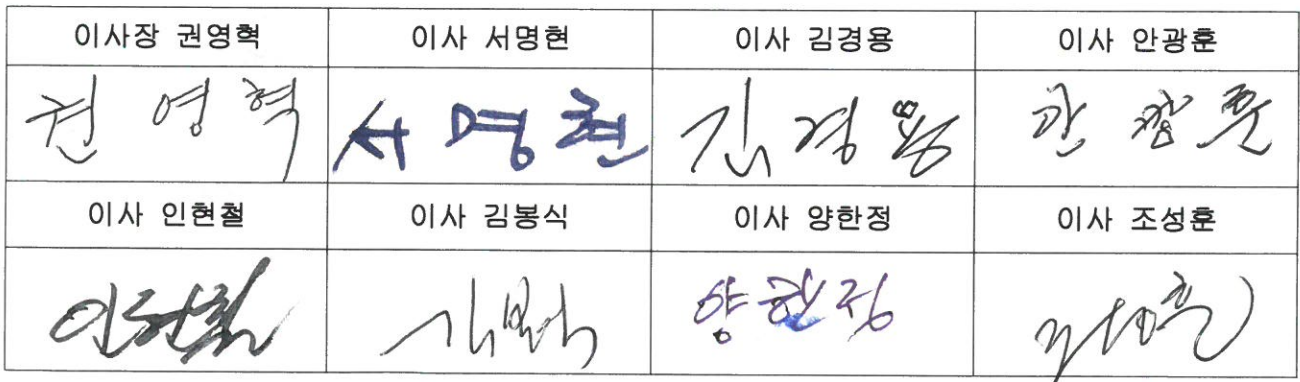 이사장 권영혁 이사 서명현 이사 김경용 이사 안광훈
권 영 혁 서 명 현 김 경 용 안 광 훈
이사 인현철 이사 김봉식 이사 양한정 이사 조성훈
인현철 김봉식 양한정 조성훈